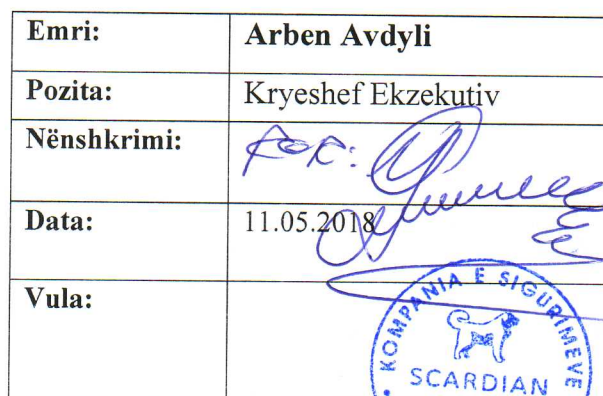 Emri: Arben Avdyli
Pozita: Kryeshef Ekzekutiv
Nënshkrimi:
Data: 11.05.2018
Vula:
KOMPANIA E SIGURIMEVE
SCARDIAN